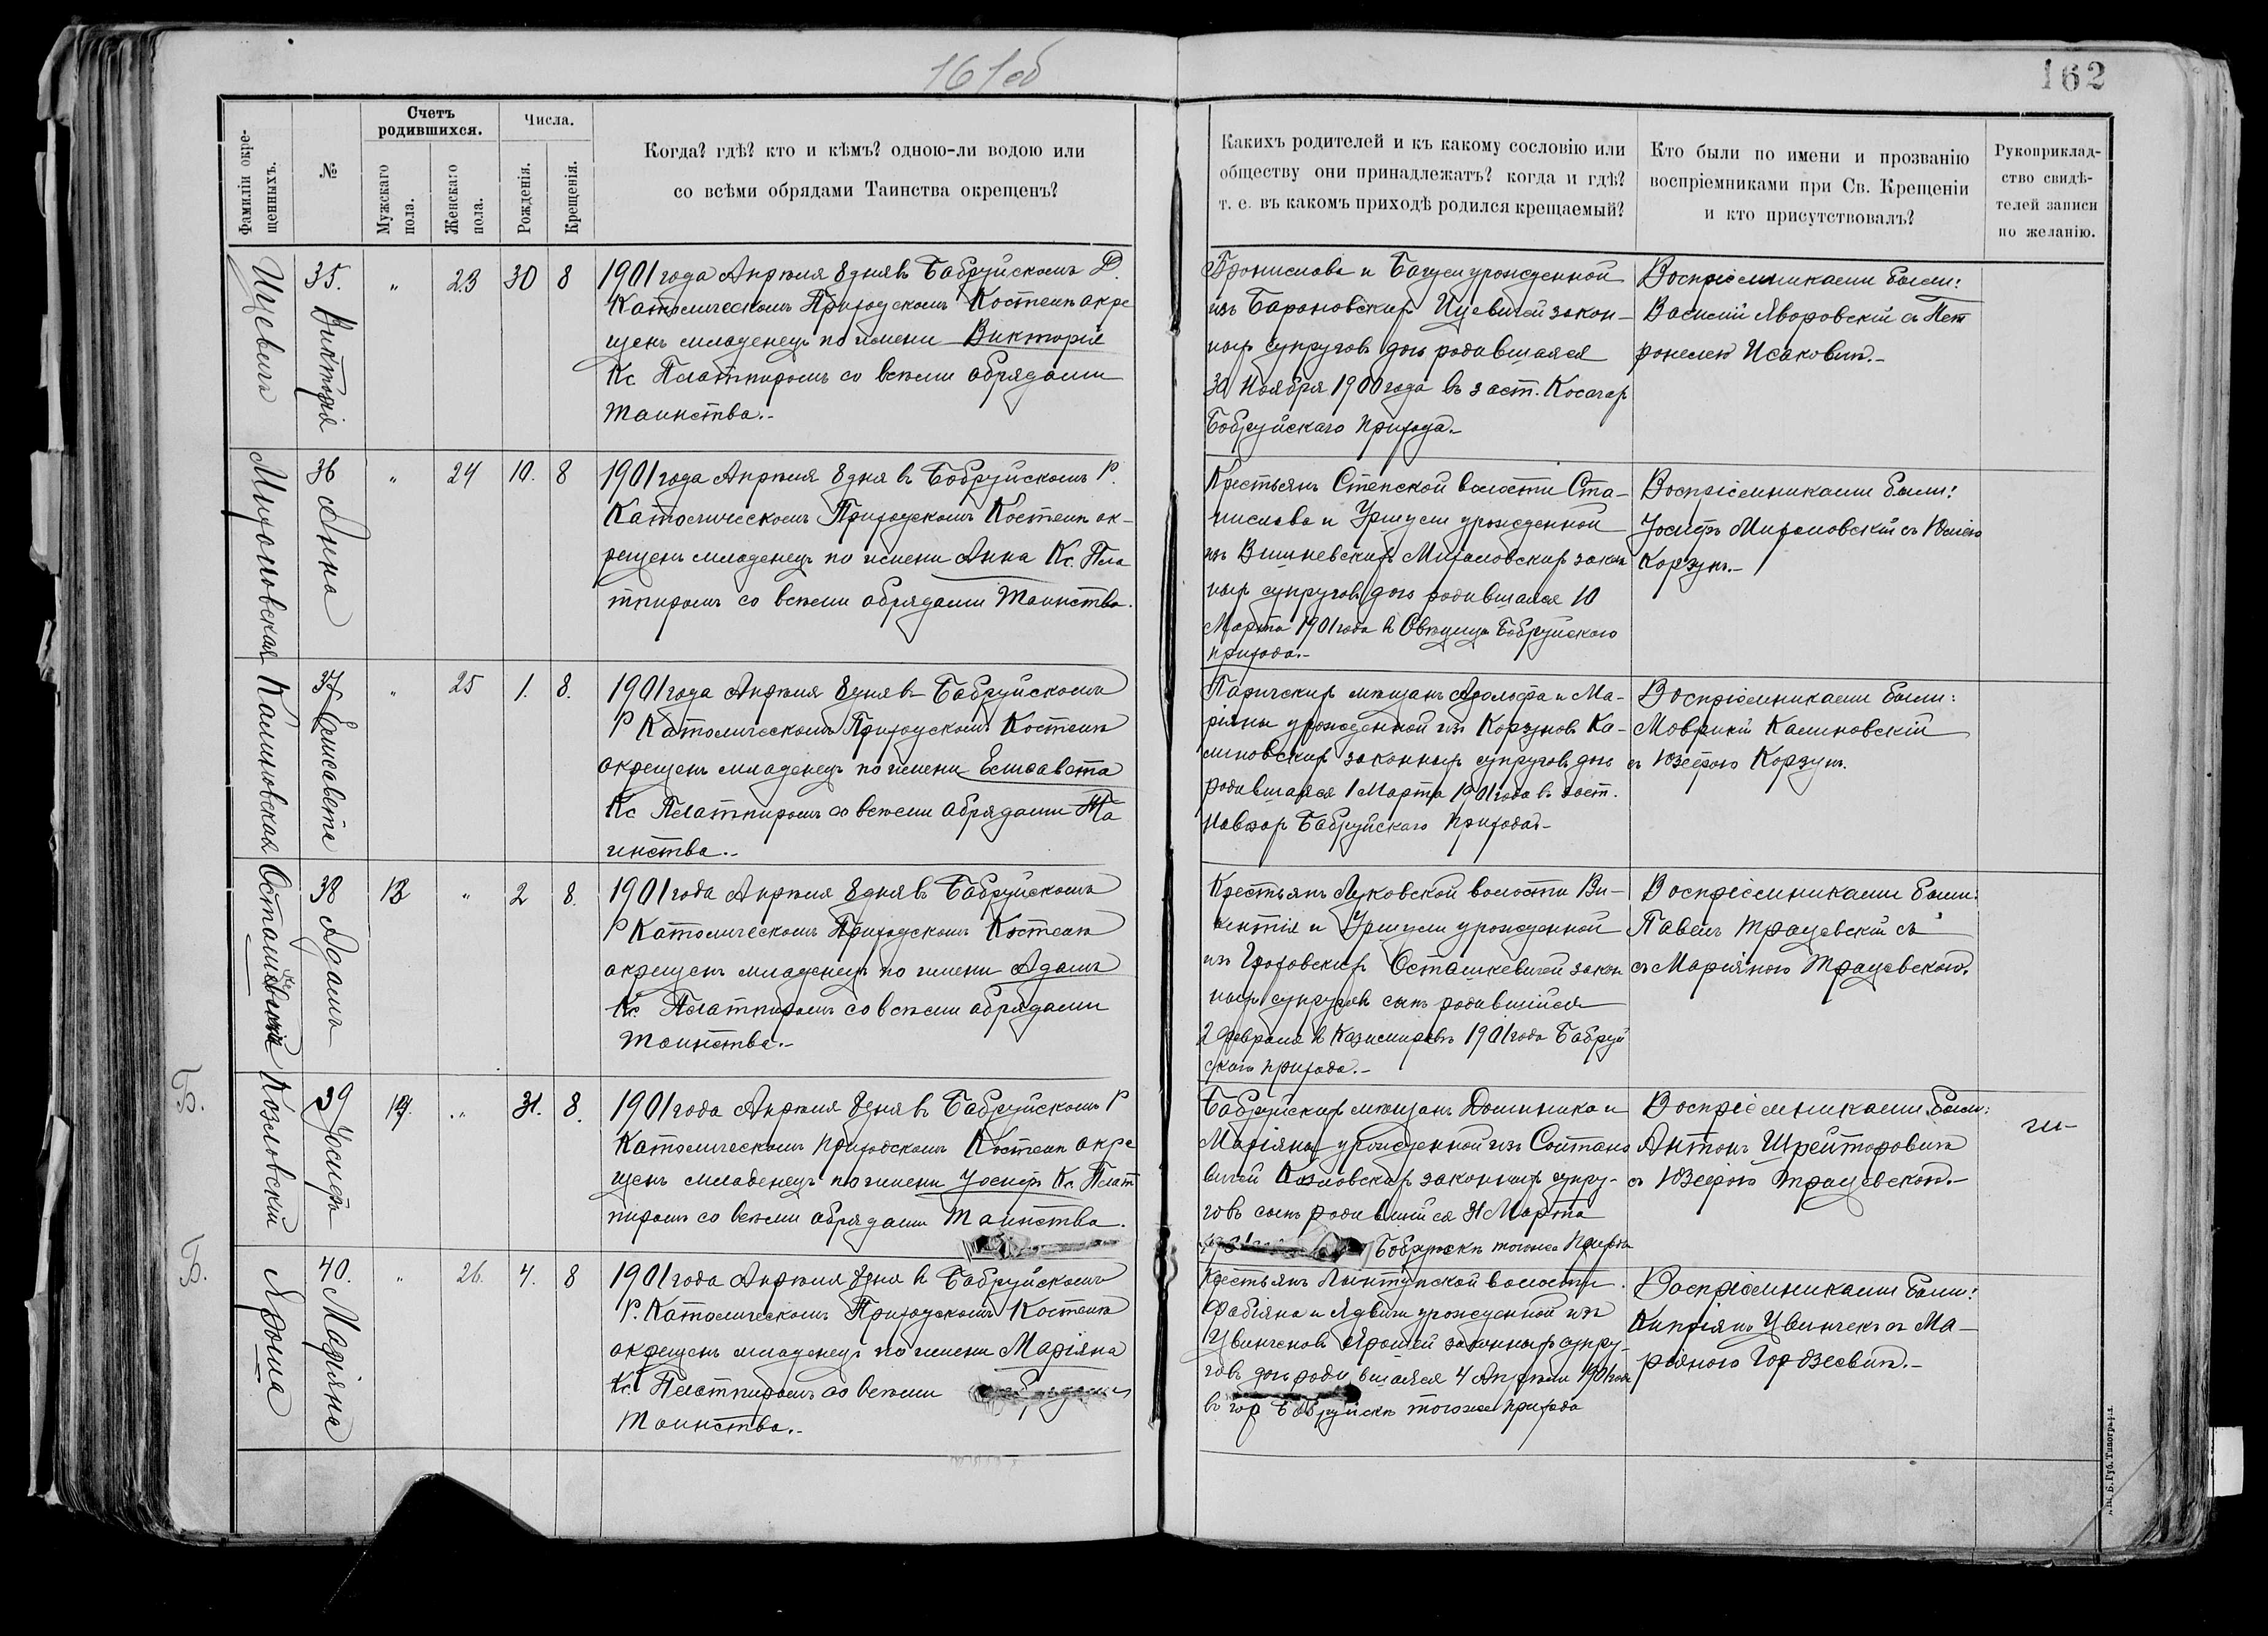 161об
162
Фамиліи окре-
щенныхъ.
№
Счетъ
родившихся.
Мужскаго
пола.
Женскаго
пола.
Числа.
Рожденія.
Крещенія.
Когда? гдѣ? кто и кѣмъ? одною-ли водою или
со всѣми обрядами Таинства окрещенъ?
Какихъ родителей и къ какому сословію или
обществу они принадлежатъ? когда и гдѣ?
т. е. въ какомъ приходѣ родился крещаемый?
Кто были по имени и прозванію
воспріемниками при Св. Крещеніи
и кто присутствовалъ?
Рукоприклад-
ство свидѣ-
телей записи
по желанію.
Ицевичъ
35. Викторія
" 23 30 8
1901 года Апрѣля 8 дня въ Бобруйскомъ Р.
Католическомъ Приходскомъ Костелѣ окре
щенъ младенецъ по имени Викторія
Кс. ПлаТпиромъ со всѣми обрядами
Таинства.-
Бронислава и урожденной
изъ Барановскихъ Ицевичей закон-
ныхъ супруговъ дочь родившаяся
30 Ноября 1900 года въ заст. Косачах
Бобруйскаго прихода.-
Воспріемниками были:
Василій Яворовскій съ Пет
ронелею Исаковичъ.-
Михаловская
36 Анна
" 24 10. 8
1901 года Апрѣля 8 дня въ Бобруйскомъ Р.
Католическомъ Приходскомъ Костелѣ ок-
рещенъ младенецъ по имени Анна Кс. Пла
тпиромъ со всѣми обрядами Таинства.
Крестьянъ Степской волости Ста-
нислава и Уршули урожденной
изъ Вишневскихъ Михаловскихъ закон
ныхъ супруговъ дочь родившаяся 10
Марта 1901 года въ Бобруйскаго
прихода.-
Воспріемниками были:
Іосифъ Михаловскій съ Юлією
Корзунъ.-
Калиновская
37 Елисавета
" 25 1. 8.
1901 года Апрѣля 8 дня въ Бобруйскомъ
Р Католическомъ Приходскомъ Костелѣ
окрещенъ младенецъ по имени Елисавета
Кс Платпиромъ со всѣми обрядами Та
инства.-
Паричскихъ мѣщанъ Адольфа и Ма-
ріяны урожденной изъ Корзуновъ Ка-
линовскихъ законныхъ супруговъ дочь
родившаяся 1 Марта 1901 года въ заст.
Бобруйскаго прихода.-
Воспріемниками были:
Маврикій Калиновскій
съ Юзефою Корзунъ.
Осташкевичъ
38 Адамъ
13 " 2 8.
1901 года Апрѣля 8 дня въ Бобруйскомъ
Р Католическомъ Приходскомъ Костелѣ
окрещенъ младенецъ по имени Адамъ
Кс. Платпиромъ со всѣми обрядами
Таинства.-
Крестьянъ Луковской волости Ви-
кентія и Уршули урожденной
изъ Осташкевичей закон
ныхъ супруговъ сынъ родившійся
2 Февраля въ Казимировѣ 1901 года Бобруй
скаго прихода.-
Воспріемниками были:
Павелъ Трацевскій съ
съ Маріяною Трацевскою.
Б.
Козловскій
39 Іосифъ
14. " 31. 8.
1901 года Апрѣля 8 дня въ Бобруйскомъ Р
Католическомъ приходскомъ Костелѣ окре
щенъ младенецъ по имени Іосифъ Кс. Плат
пиромъ со всѣми обрядами Таинства.
Бобруйскихъ мѣщанъ Доминика и
Маріяны урожденной изъ Солтано
вичей Козловскихъ законныхъ супру-
говъ сынъ родившійся 31 Марта
Бобруйскѣ тогоже прихода
Воспріемниками были:
Антонъ Шрейторовичъ
съ Юзефою Трацевскою.-
Б.
Яроша
40. Маріяна
" 26. 4. 8
1901 года Апрѣля 8 дня въ Бобруйскомъ
Р. Католическомъ Приходскомъ Костелѣ
окрещенъ младенецъ по имени Маріяна
Кс. Платпиромъ со всѣми обрядами
Таинства.-
Крестьянъ Лынтупской волости
Фабіяна и Ядвиги урожденной изъ
Цвинчековъ Ярошей законныхъ супру-
говъ дочь родившаяся 4 Апрѣля 1901 года
въ гор Бобруйскѣ тогоже прихода
Воспріемниками были:
Кипріянъ Цвинчекъ съ Ма-
ріяною Гордзевичъ.-